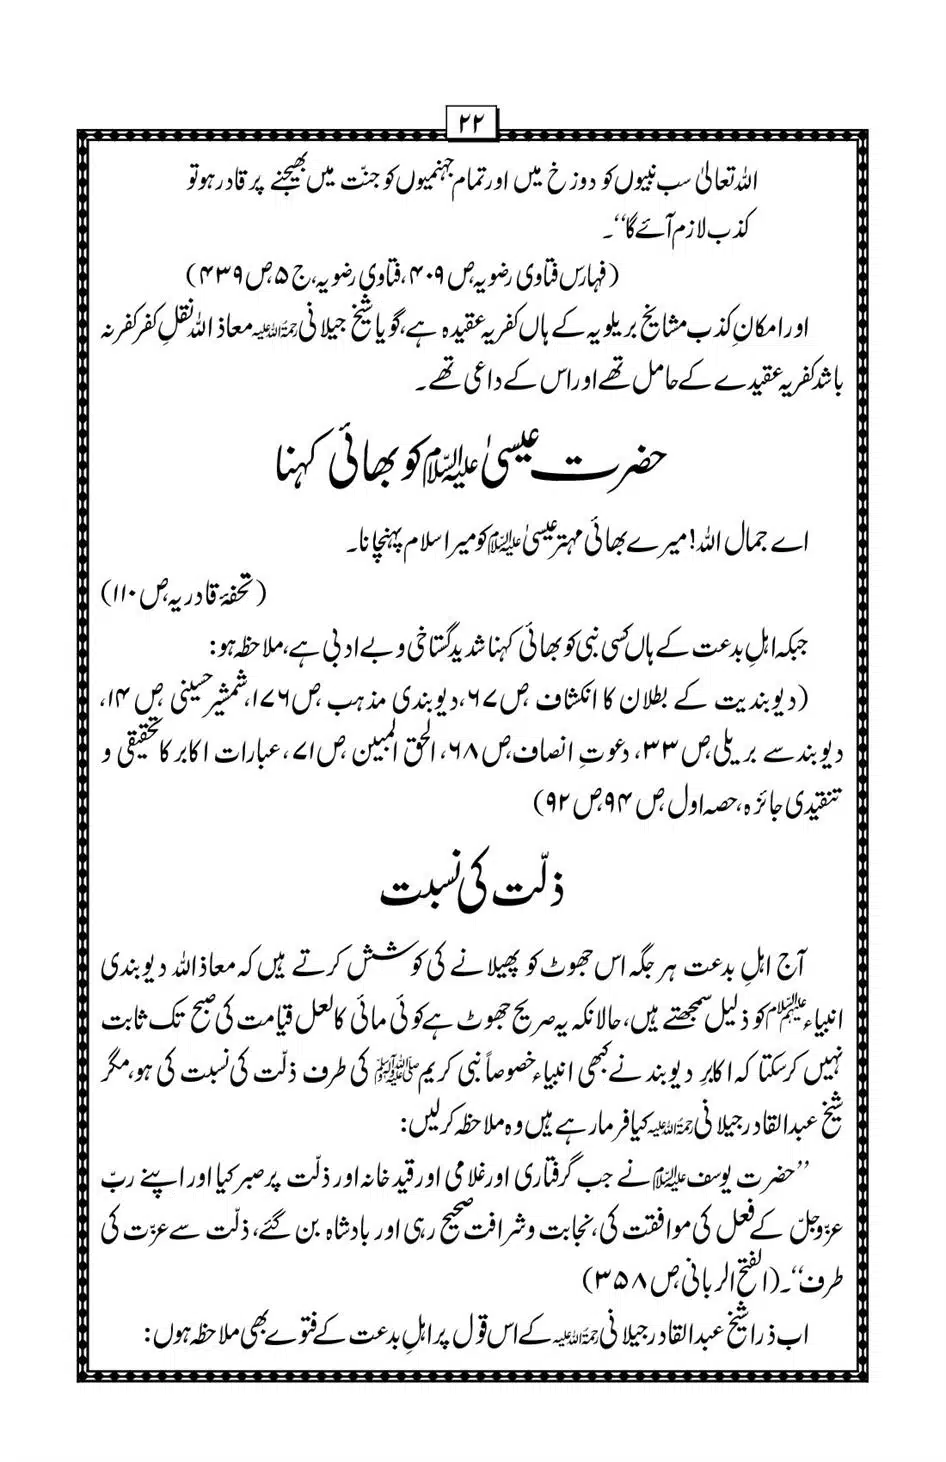 ۲۲
اللہ تعالیٰ سب نبیوں کو دوزخ میں اور تمام جہنمیوں کو جنّت میں بھیجنے پر قادر ہو تو
کذب لازم آئے گا‘‘۔
(فہارس فتاوی رضویہ ص ۴۰۹، فتاوی رضویہ، ج ۵ ص ۴۳۹)
اور امکانِ کذب مشایخ بریلویہ کے ہاں کفریہ عقیدہ ہے، گویا شیخ جیلانی رحمۃ اللہ علیہ معاذ اللہ نقلِ کفر کفر نہ
باشد کفریہ عقیدے کے حامل تھے اور اس کے داعی تھے۔
حضرت عیسیٰ علیہ السلام کو بھائی کہنا
اے جمال اللہ! میرے بھائی مہتر عیسیٰ علیہ السلام کو میرا سلام پہنچانا۔
(تحفۂ قادریہ ص ۱۱۰)
جبکہ اہلِ بدعت کے ہاں کسی نبی کو بھائی کہنا شدید گستاخی و بے ادبی ہے، ملاحظہ ہو:
(دیوبندیت کے بطلان کا انکشاف ص ۶۷، دیوبندی مذہب ص ۱۷۶، شمشیر حسینی ص ۱۴،
دیوبند سے بریلی ص ۳۳، دعوتِ انصاف ص ۶۸، الحق المبین ص ۷۱، عبارات اکابر کا تحقیقی و
تنقیدی جائزہ، حصہ اول ص ۹۴ ص ۹۲)
ذلّت کی نسبت
آج اہلِ بدعت ہر جگہ اس جھوٹ کو پھیلانے کی کوشش کرتے ہیں کہ معاذ اللہ دیوبندی
انبیاء علیہم السلام کو ذلیل سمجھتے ہیں، حالانکہ یہ صریح جھوٹ ہے کوئی مائی کا لعل قیامت کی صبح تک ثابت
نہیں کر سکتا کہ اکابرِ دیوبند نے کبھی انبیاء خصوصاً نبی کریم صلی اللہ علیہ وسلم کی طرف ذلّت کی نسبت کی ہو، مگر
شیخ عبدالقادر جیلانی رحمۃ اللہ علیہ کیا فرما رہے ہیں وہ ملاحظہ کر لیں:
’’حضرت یوسف علیہ السلام نے جب گرفتاری اور غلامی اور قید خانہ اور ذلّت پر صبر کیا اور اپنے ربّ
عزّوجلّ کے فعل کی موافقت کی، نجابت و شرافت صحیح رہی اور بادشاہ بن گئے، ذلّت سے عزّت کی
طرف‘‘۔ (الفتح الربانی ص ۳۵۸)
اب ذرا شیخ عبدالقادر جیلانی رحمۃ اللہ علیہ کے اس قول پر اہلِ بدعت کے فتوے بھی ملاحظہ ہوں: